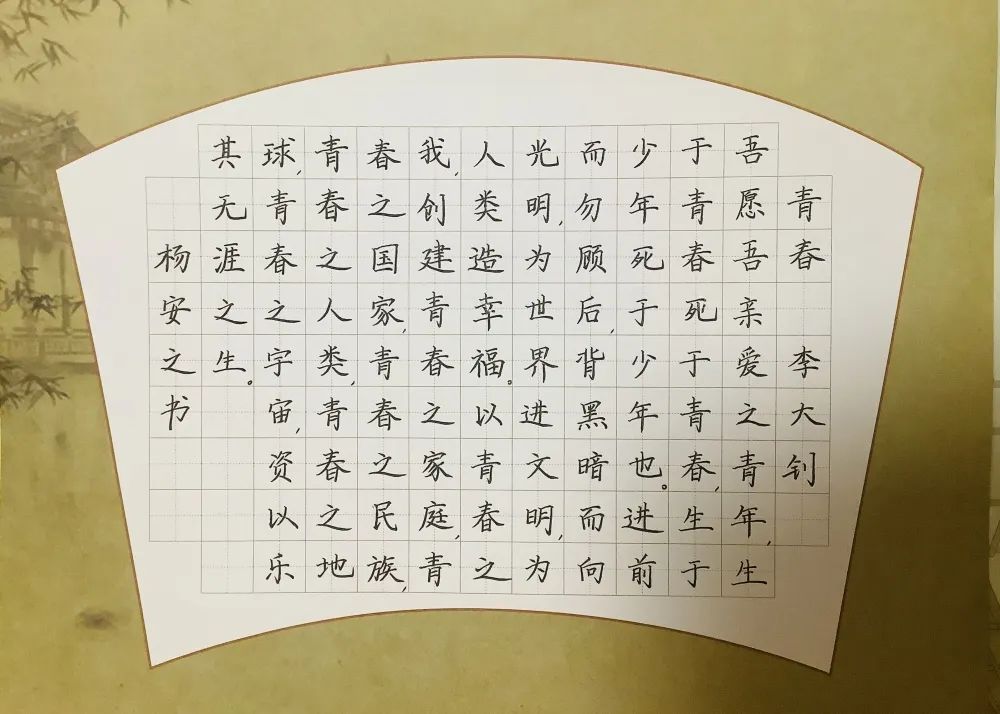 青春 李大钊
吾愿吾亲爱之青年,生
于青春死于青春,生于
少年死于少年也。进前
而勿顾后,背黑暗而向
光明,为世界进文明,为
人类造幸福。以青春之
我,创建青春之家庭,青
春之国家,青春之民族,
青春之人类,青春之地
球,青春之宇宙,资以乐
其无涯之生。
杨安之书